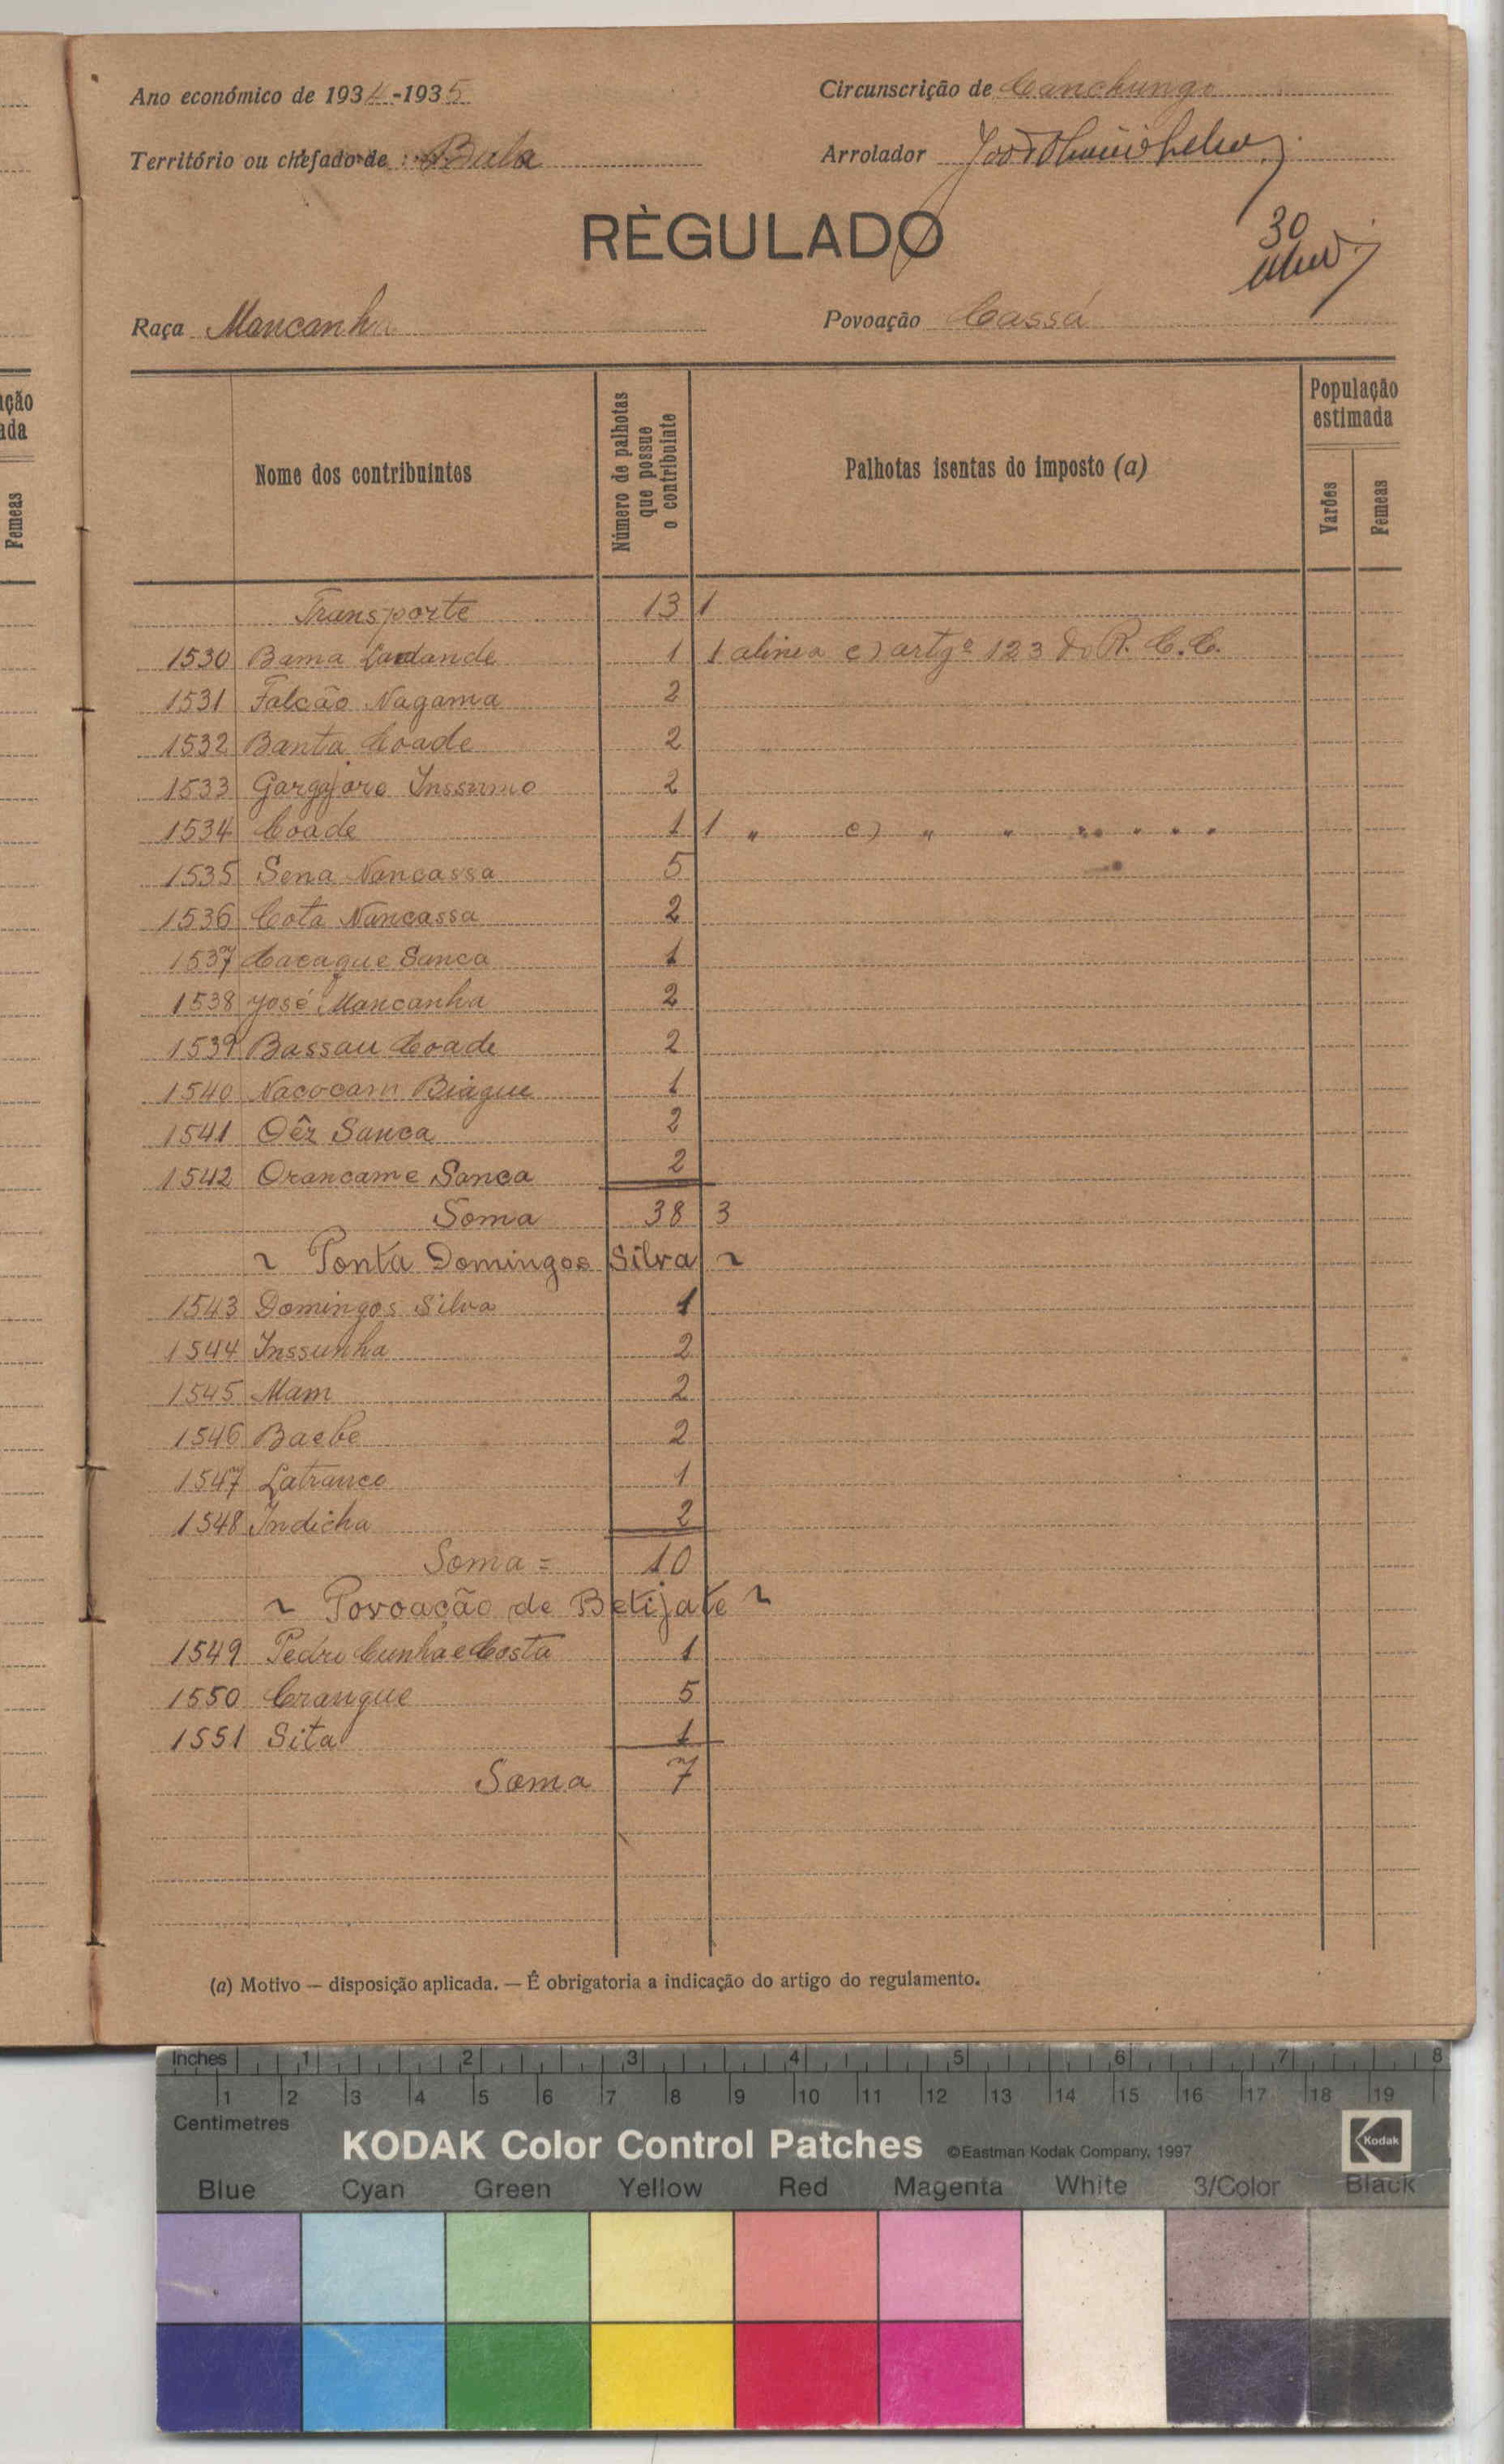 Ano económico de 1934-1935
Circunscrição de Canchungo
Território ou chefado de Bula
Arrolador
RÈGULADO
30
Raça Mancanha
Povoação Cassá
ção
ada
Femeas
Nome dos contribuintes
Número de palhotas que possue o contribuinte
Palhotas isentas do imposto (a)
População estimada
Varões
Femeas
Transporte 13 1
1530 Bama 1 1 alinea c) artgº 123 do R. C. C.
1531 Falcão Nagama 2
1532 Banta Coade 2
1533 Gargajaro Inssumo 2
1534 Coade 1 1 " c) " " " " " "
1535 Sena Nancassa 5
1536 Cota Nancassa 2
1537 Cacague Sanca 1
1538 José Mancanha 2
1539 Bassau Coade 2
1540 Nacocam Biague 1
1541 Oêz Sanca 2
1542 Orancame Sanca 2
Soma 38 3
~ Ponta Domingos Silva ~
1543 Domingos Silva 1
1544 Inssunha 2
1545 Mam 2
1546 Baebe 2
1547 Latranco 1
1548 Indicha 2
Soma = 10
~ Povoação de Betijate ~
1549 Pedro Cunha e Costa 1
1550 Crangue 5
1551 Sita 1
Soma 7
(a) Motivo — disposição aplicada. — É obrigatoria a indicação do artigo do regulamento.
Inches 1 2 3 4 5 6 7 8
1 2 3 4 5 6 7 8 9 10 11 12 13 14 15 16 17 18 19
Centimetres
KODAK Color Control Patches ©Eastman Kodak Company, 1997 Kodak
Blue Cyan Green Yellow Red Magenta White 3/Color Black